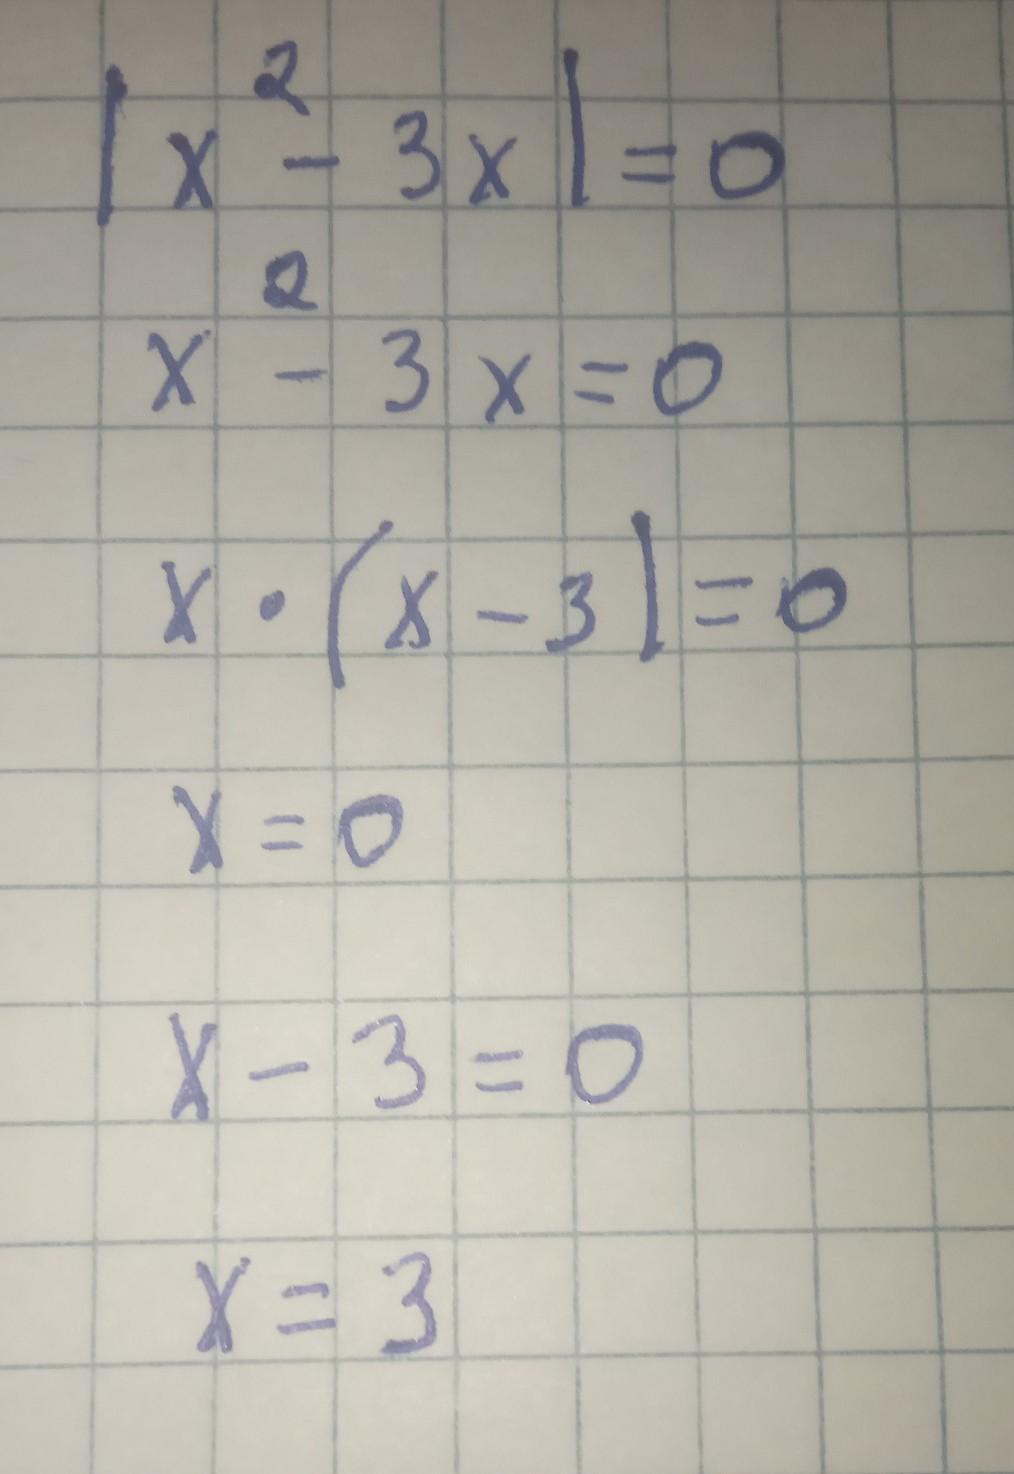 |x² - 3x| = 0
x² - 3x = 0
x · (x - 3) = 0
x = 0
x - 3 = 0
x = 3